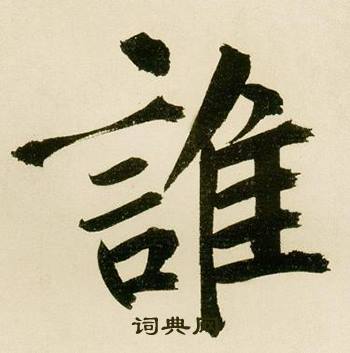 誰
词典网